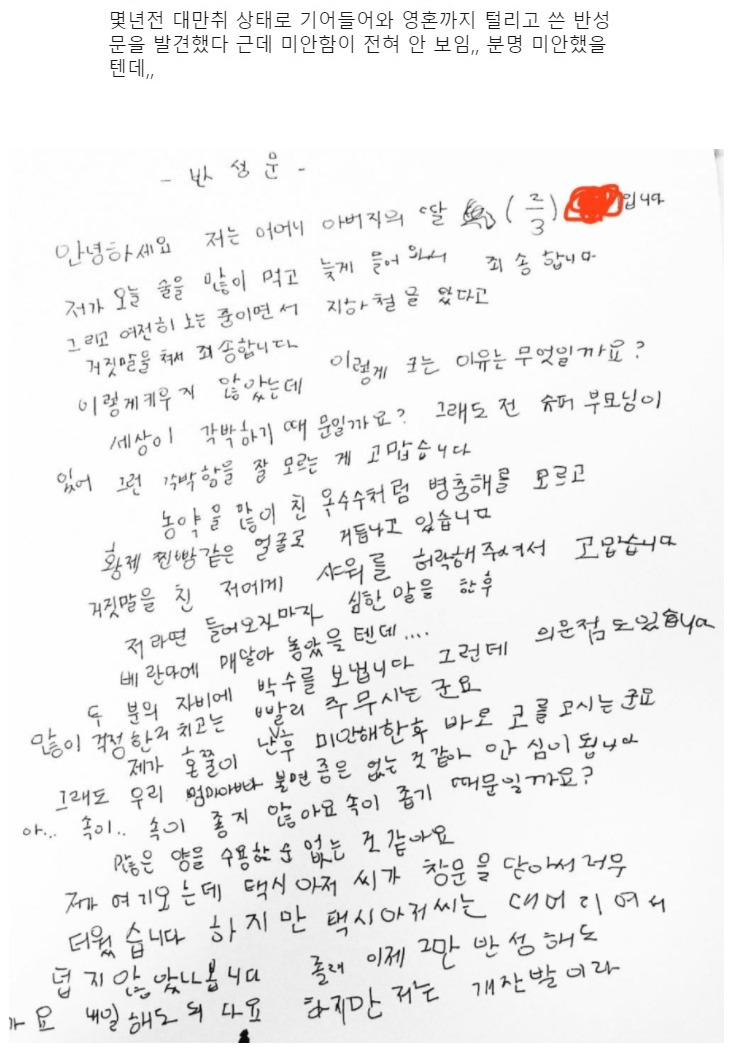 몇년전 대만취 상태로 기어들어와 영혼까지 털리고 쓴 반성
문을 발견했다 근데 미안함이 전혀 안 보임,, 분명 미안했을
텐데,,
- 반 성 문 -
안녕하세요 저는 어머니 아버지의 딸 (2/3) 입니다
저가 오늘 술을 많이 먹고 늦게 들어 와서 죄송 합니다
그리고 여전히 노는 중이면서 지하철을 탔다고
거짓말을 쳐서 죄송합니다
이렇게키우지 않았는데 이렇게 크는 이유는 무엇일까요?
세상이 각박하기 때문일까요? 그래도 전 슈퍼 부모님이
있어 그런 각박함을 잘 모르는 게 고맙습니다
농약을 많이 친 옥수수처럼 병충해를 모르고
황제 찐빵같은 얼굴로 거듭나고 있습니다
거짓말을 친 저에게 샤워를 허락해주셔서 고맙습니다
저라면 들어오자마자 심한 말을 한후
베란다에 매달아 놓았을 텐데....
두 분의 자비에 박수를 보냅니다 그런데 의문점도있습니다
많이 걱정한거 치고는 빨리 주무시는 군요
제가 혼쭐이 난후 미안해한후 바로 코를 고시는군요
그래도 우리 엄마아빠가 불면증은 없는 것같아 안심이 됩니다
아... 속이.. 속이 좋지 않아요 속이 좁기 때문일까요?
많은 양을 수용할순 없는 것 같아요
제가 여기오는데 택시 아저씨가 창문을 닫아서 너무
더웠습니다 하지만 택시아저씨는 대머리여서
덥지않았나봅니다 졸려 이제 그만 반성해도
가요 내일 해도 되 다요 하지만 저는 개잔발이라